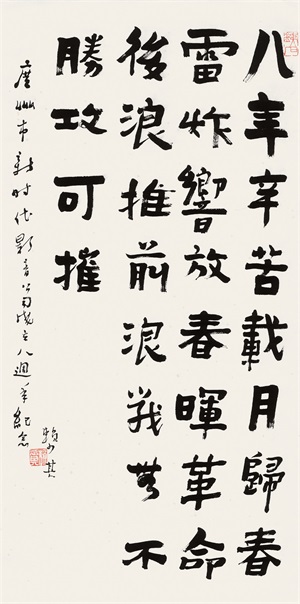 八年辛苦載月歸春
雷炸響放春暉革命
後浪推前浪戰無不
勝攻可摧
廣州市新时代影音公司成立八週年紀念
賴少其